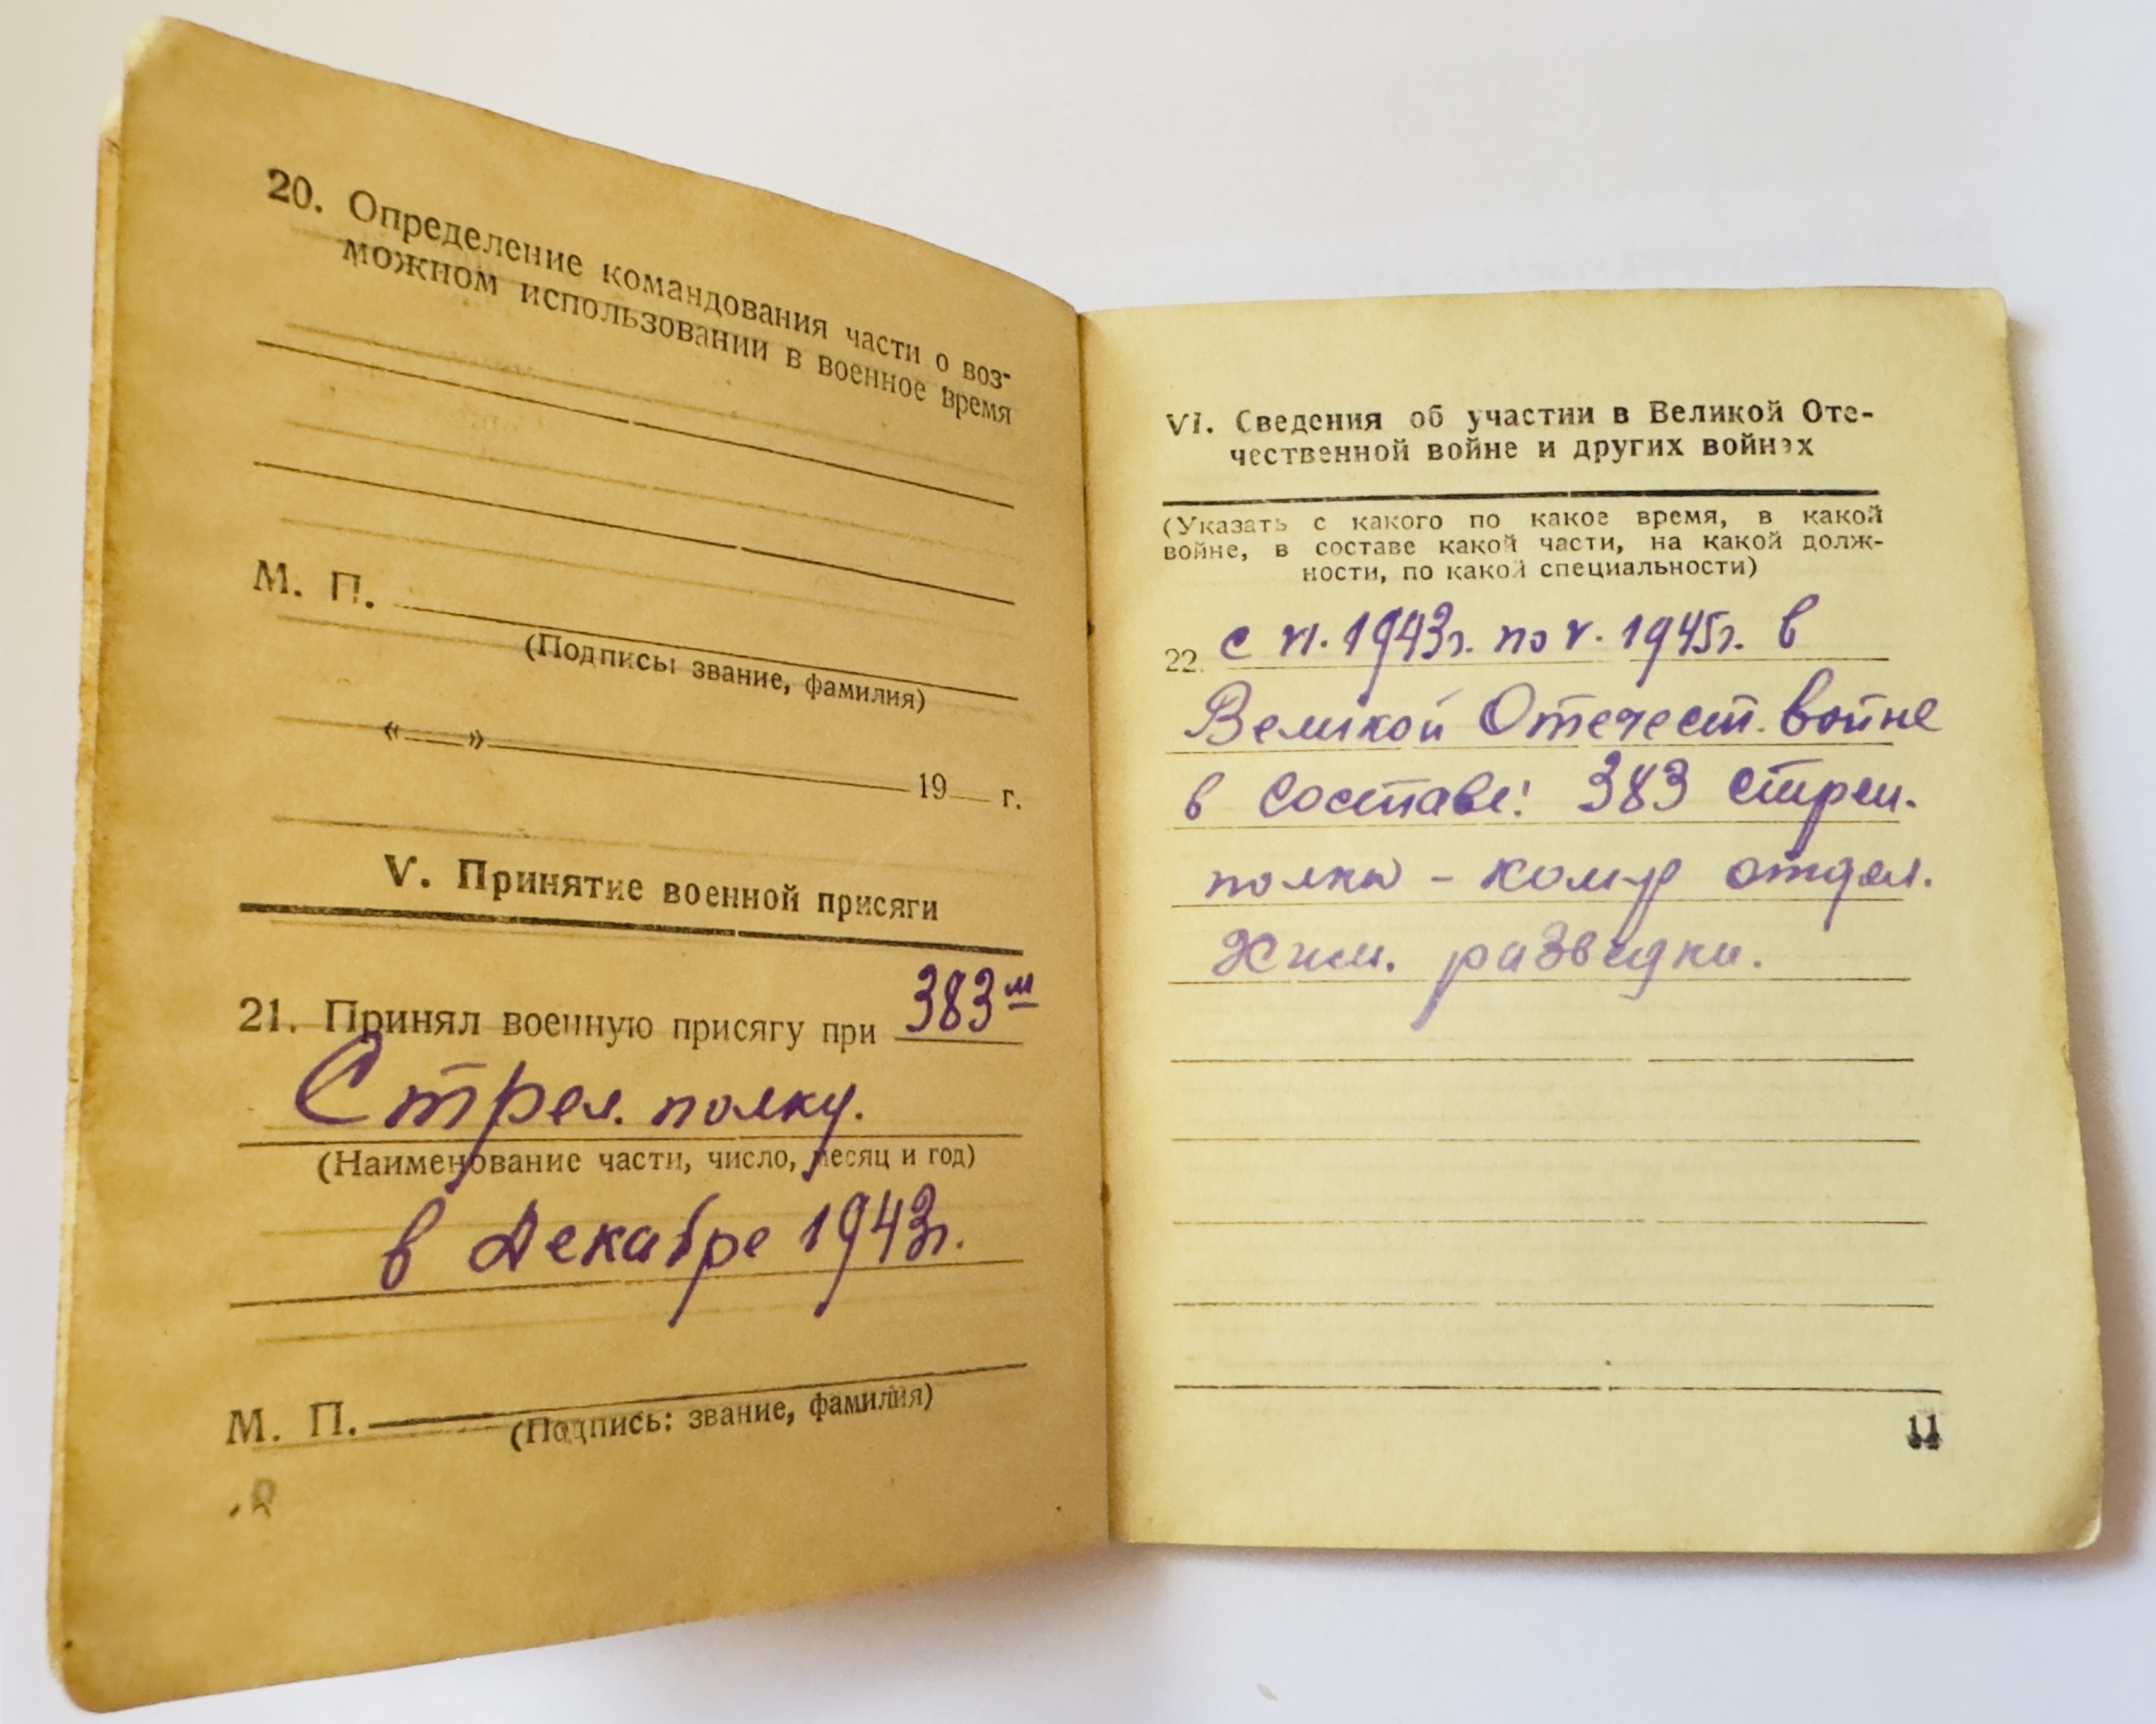 20. Определение командования части о воз-
можном использовании в военное время
М. П.
(Подпись: звание, фамилия)
«    » 19   г.
V. Принятие военной присяги
21. Принял военную присягу при 383м
Стрел. полку.
(Наименование части, число, месяц и год)
в Декабре 1943г.
М. П.
(Подпись: звание, фамилия)
VI. Сведения об участии в Великой Оте-
чественной войне и других войнах
(Указать с какого по какое время, в какой
войне, в составе какой части, на какой долж-
ности, по какой специальности)
22. с VI. 1943г. по V. 1945г. в
Великой Отечест. войне
в составе: 383 стрел.
полка - комдр отдел.
Хим. разведки.
11